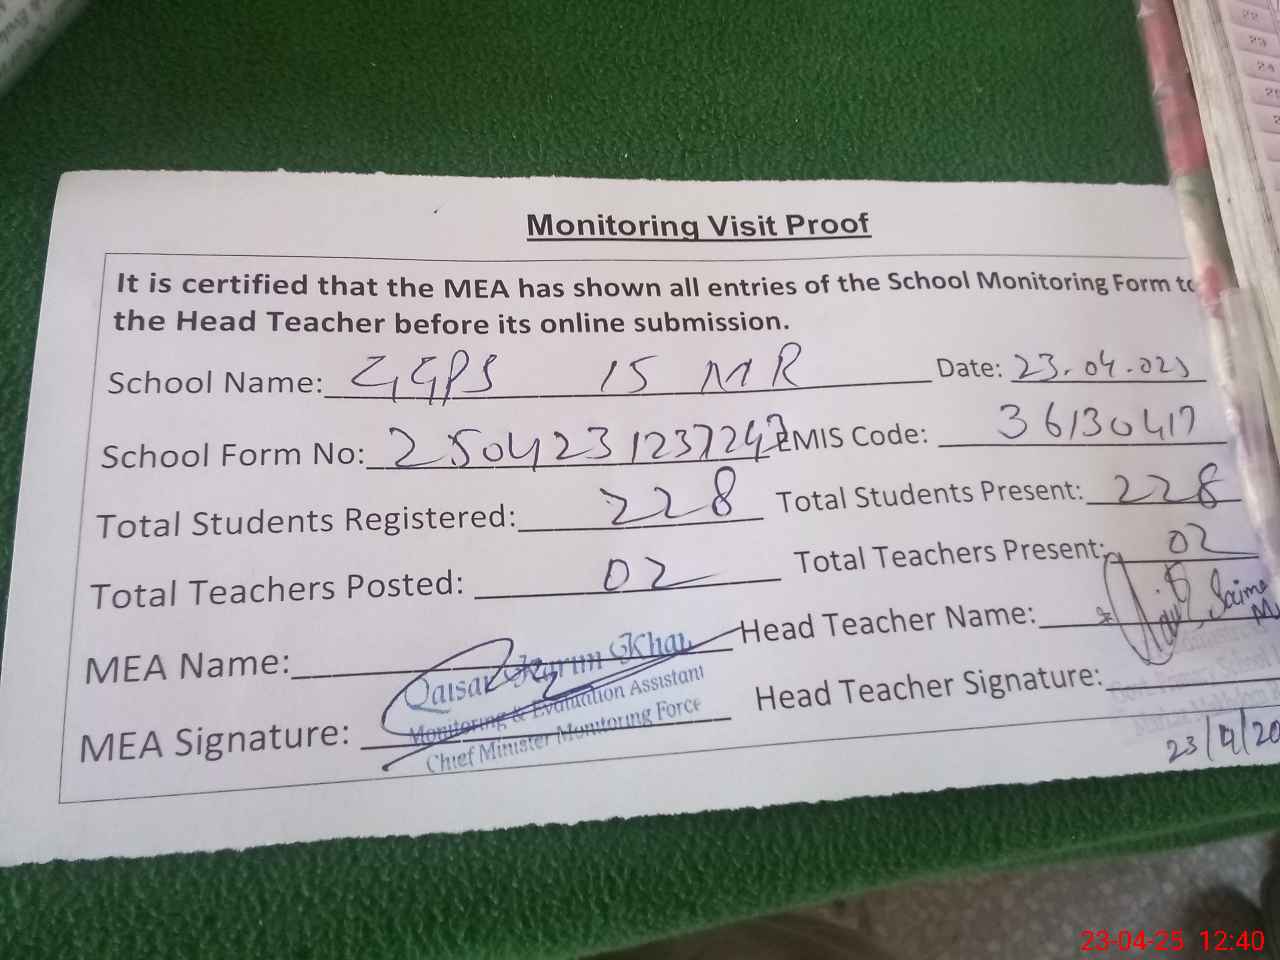 Monitoring Visit Proof
It is certified that the MEA has shown all entries of the School Monitoring Form to
the Head Teacher before its online submission.
School Name: GGPS 15 MR Date: 23.04.025
School Form No: 2504231237247 EMIS Code: 36130417
Total Students Registered: 228 Total Students Present: 228
Total Teachers Posted: 02 Total Teachers Present: 02
MEA Name: Head Teacher Name: Saima
Qaisar Khan
MEA Signature: Head Teacher Signature:
Monitoring & Evaluation Assistant
Chief Minister Monitoring Force
23/4/20
22
23
24
23-04-25 12:40